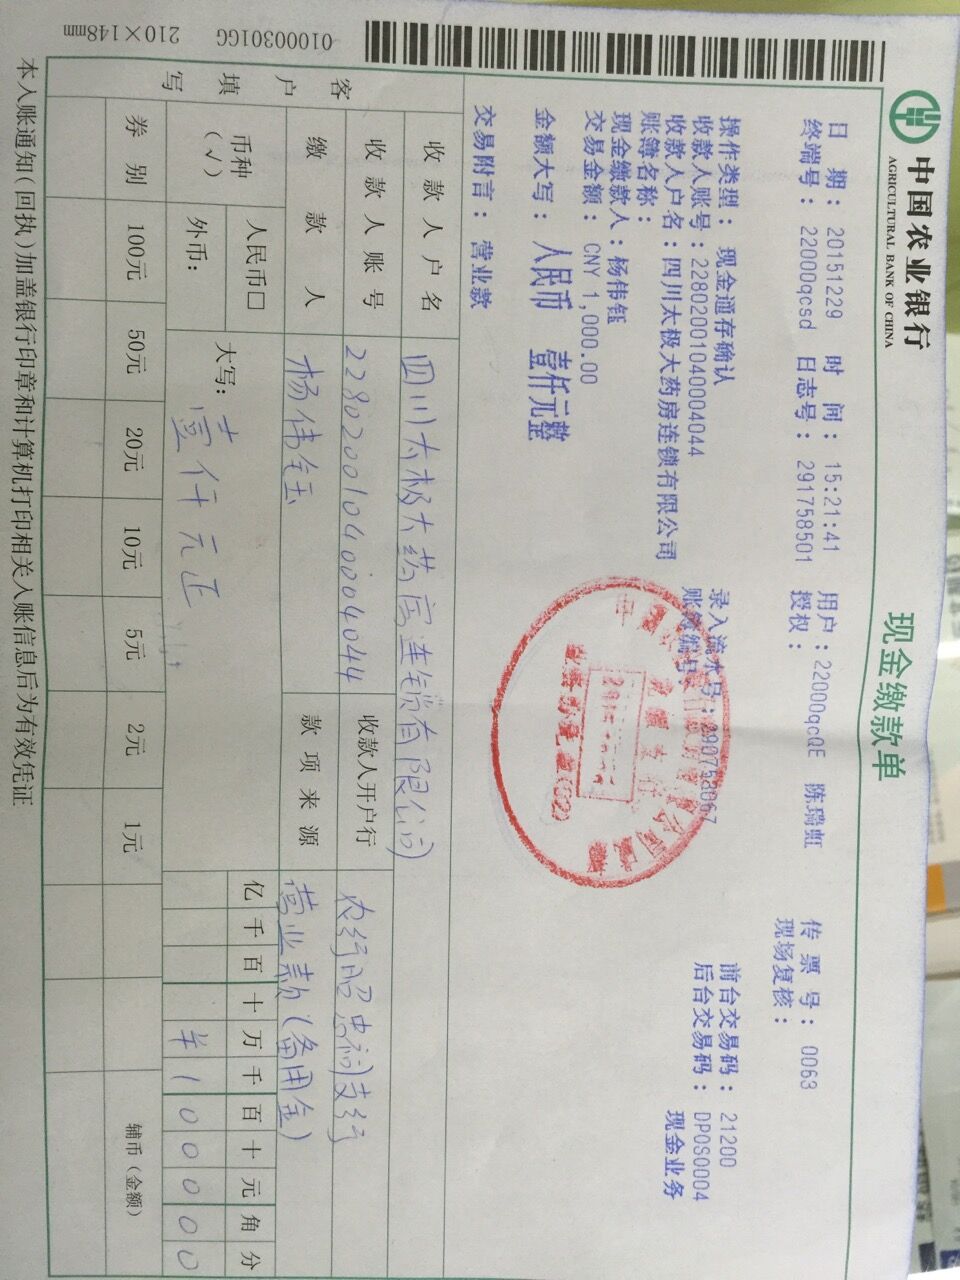 中国农业银行
AGRICULTURAL BANK OF CHINA
现金缴款单
日 期：20151229 时 间：15:21:41 用户：22000qcQE 陈瑞虹 传 票 号：0063
终端号：22000qcsd 日志号：291758501 授权： 现场复核：
操作类型：现金通存确认 录入流水号：290758067 前台交易码：21200
收款人账号：22802001040004044 账簿编号： 后台交易码：DP0S0004
收款人户名：四川太极大药房连锁有限公司 现金业务
账簿名称：
现金缴款人：杨伟钰
交易金额：CNY 1,000.00
金额大写：人民币 壹仟元整
交易附言：营业款
客户填写
收款人户名 四川太极大药房连锁有限公司
收款人账号 22802001040004044 收款人开户行
缴款人 杨伟钰 款项来源 营业款（备用金）
币种（√） 人民币□ 外币： 大写：壹仟元正 亿千百十万千百十元角分
¥100000
券别 100元 50元 20元 10元 5元 2元 1元 辅币（金额）
本入账通知（回执）加盖银行印章和计算机打印相关入账信息后为有效凭证
01000301GG 210×148mm